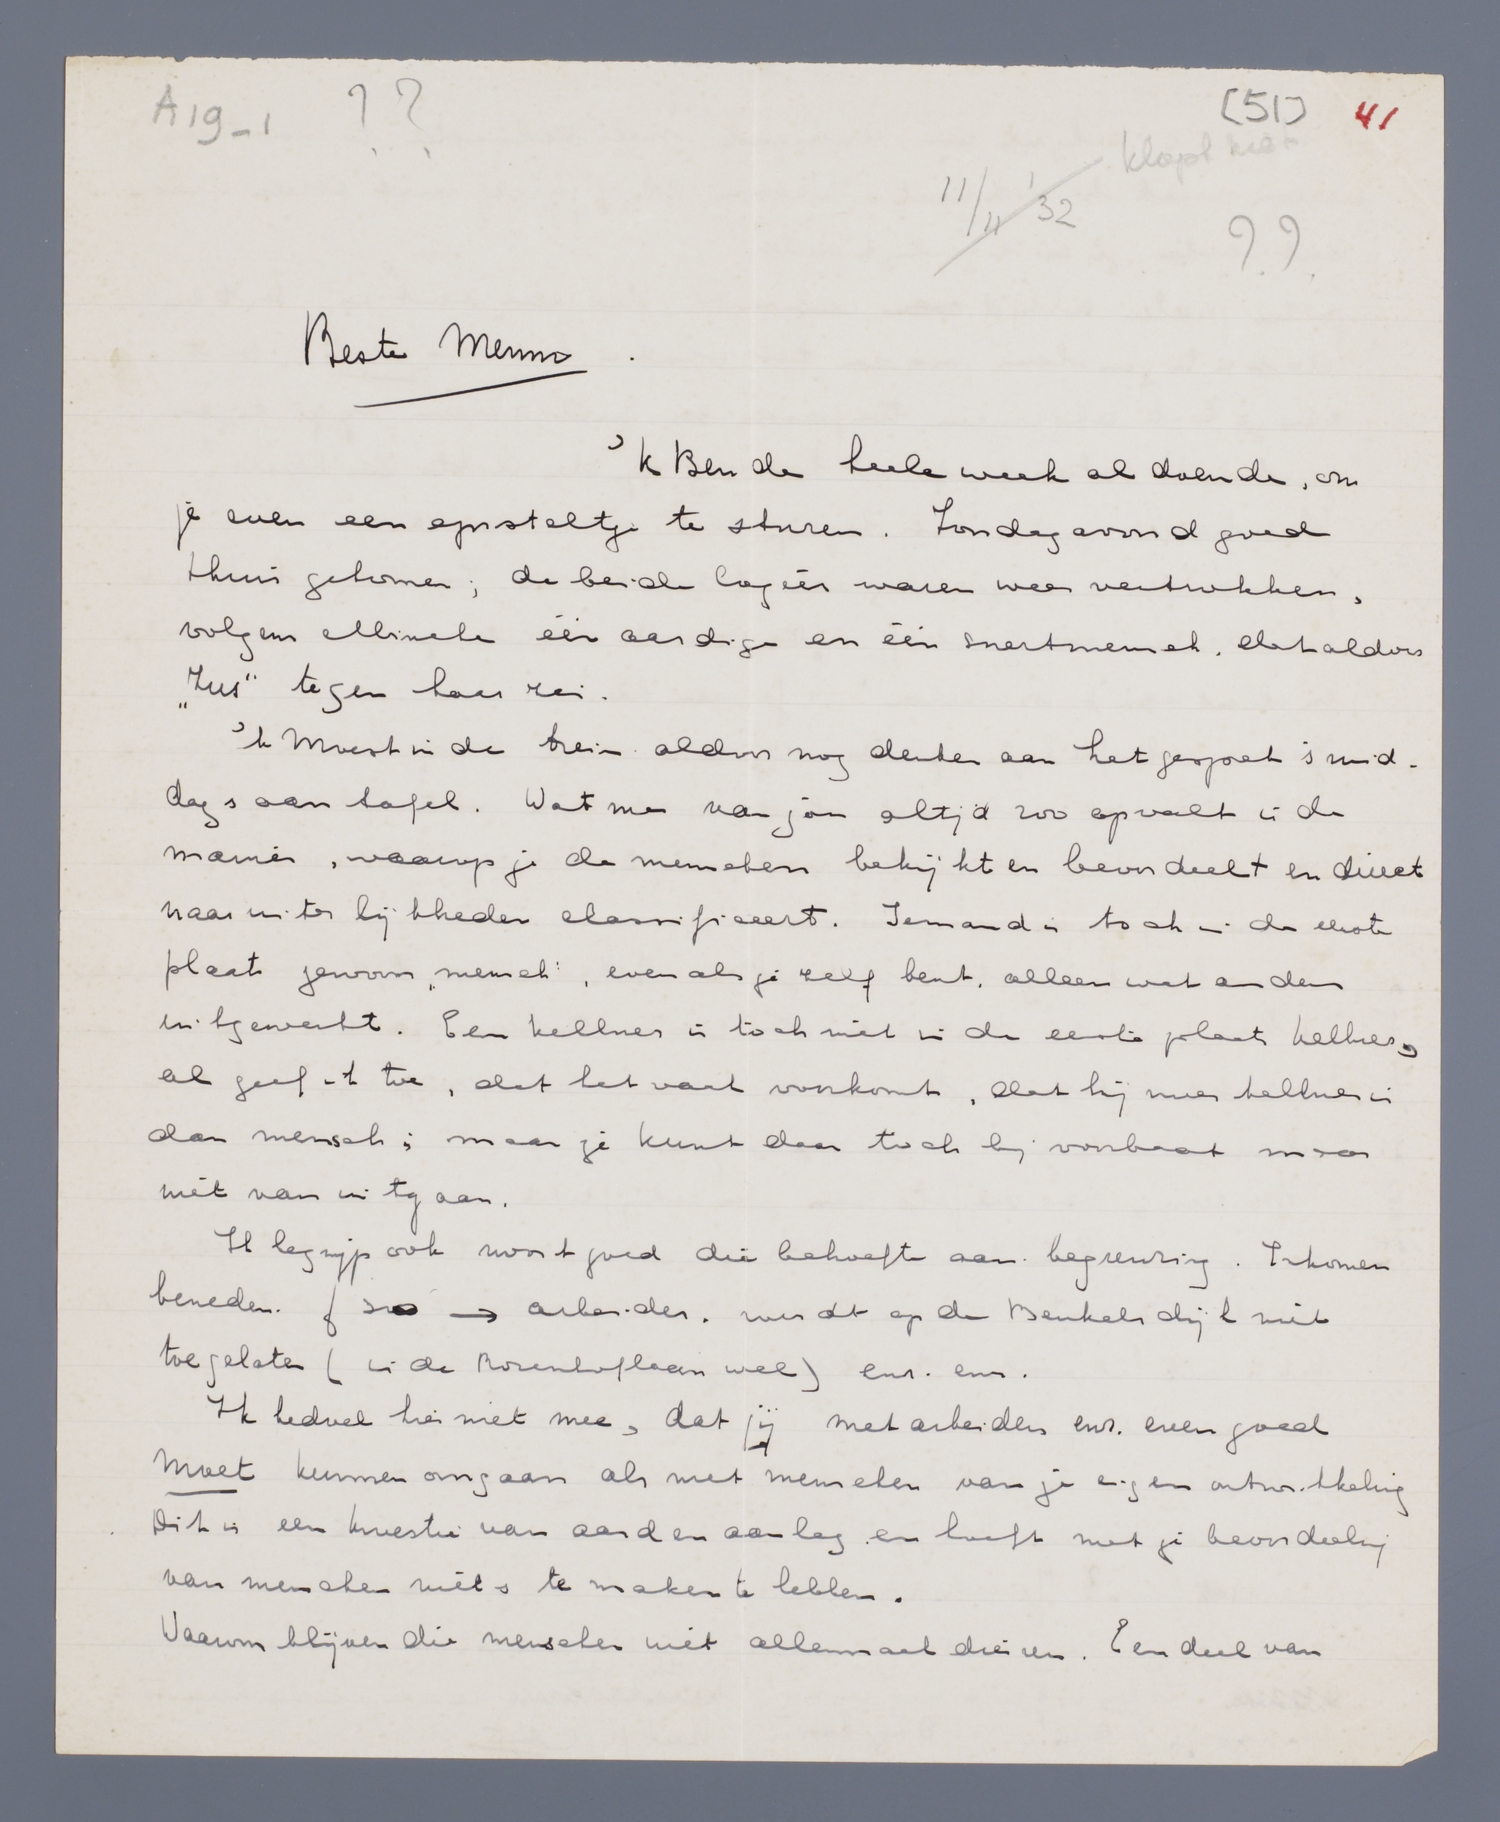 A 19-1 ??
[51] 41
klopt niet
11/11 '32
??
Beste Menno.
'k Ben de heele week al doende, om
je even een episteltje te sturen. Zondagavond goed
thuis gekomen; de beide logées waren weer vertrokken,
volgens één aardige en één snertmensch, dat aldoor
„Zus" tegen haar zei.
'k Moest in de trein aldoor nog denken aan het gesprek 's mid-
dags aan tafel. Wat me van jou altijd zoo opvalt is de
manier, waarop je de menschen bekijkt en beoordeelt en direct
naar uiterlijkheden classificeert. Iemand is toch in de eerste
plaats gewoon „mensch", evenals je zelf bent, alleen wat anders
uitgewerkt. Een kellner is toch niet in de eerste plaats kellner,
al geef ik toe, dat het vaak voorkomt, dat hij meer kellner is
dan mensch; maar je kunt daar toch bij voorbaat maar
niet van uitgaan.
Ik begrijp ook nooit goed die behoefte aan begrenzing. Inkomen
beneden f → arbeider. wordt op de Beukelsdijk niet
toegelaten (in de Rozenhoflaan wel) enz. enz.
Ik bedoel hier niet mee, dat jij met arbeiders enz. even goed
moet kunnen omgaan als met menschen van je eigen ontwikkeling
Dit is een kwestie van aard en aanleg en hoeft met je beoordeeling
van menschen niets te maken te hebben.
Waarom blijven die menschen niet allemaal dieren. Een deel van